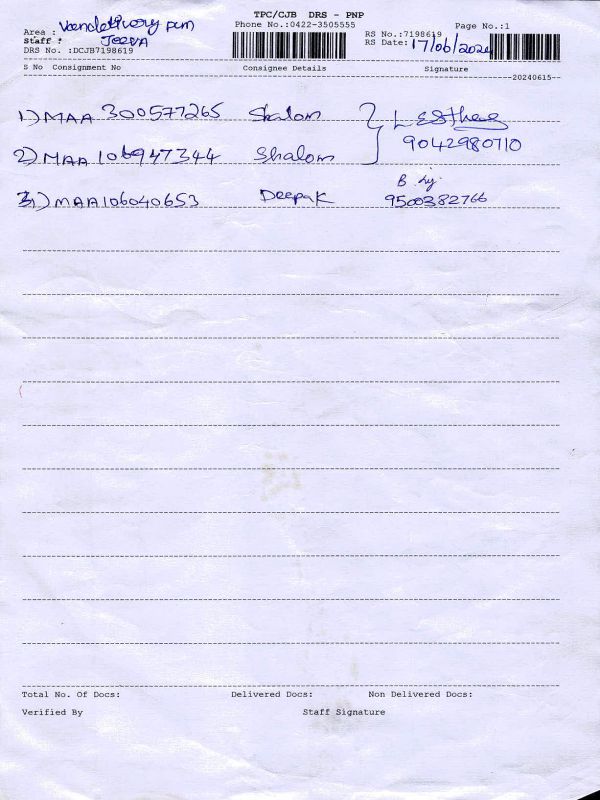 TPC/CJB DRS - PNP
Area : pcm Phone No.:0422-3505555 Page No.:1
Staff : JEEVA RS No.:7198619
DRS No. :DCJB7198619 RS Date: 17/06/2024
S No Consignment No Consignee Details Signature
20240615
1) MAA 300577265 Shalom L Esther
9042980710
2) MAA 106947344 Shalom
3) MAA106040653 Deepak 9500382766
Total No. Of Docs: Delivered Docs: Non Delivered Docs:
Verified By Staff Signature